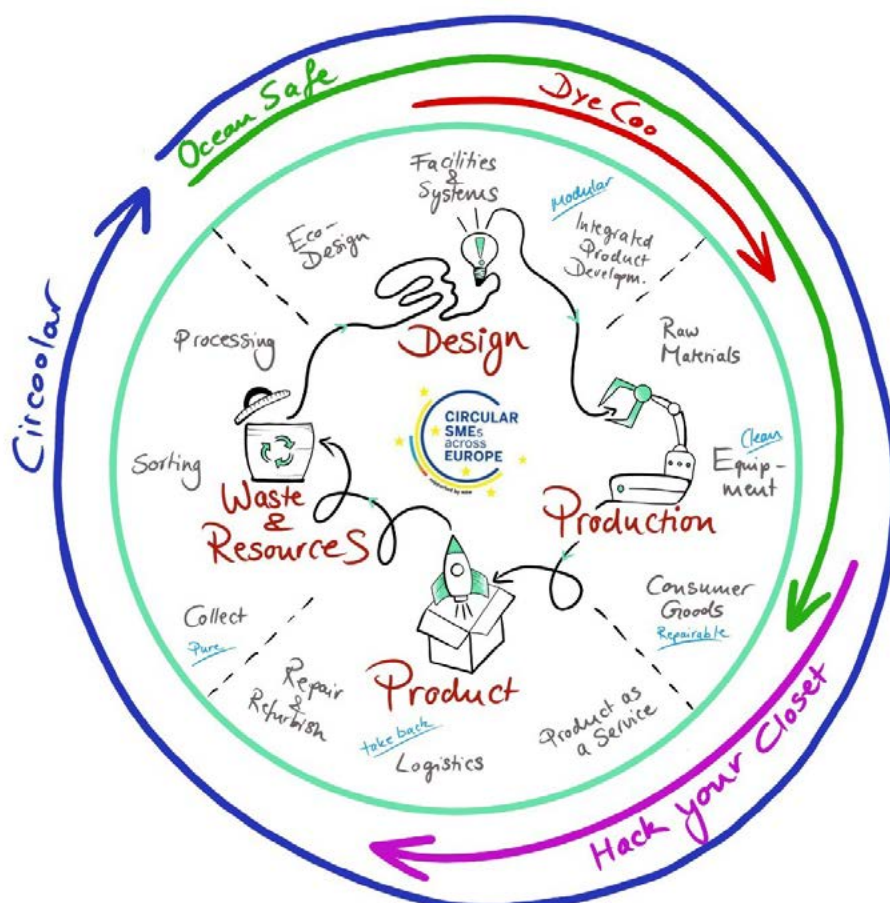 Ocean Safe
Dye Coo
Circoolar
Hack your Closet
Facilities
&
Systems
Eco-
Design
Modular
Integrated
Product
Developm.
Design
Raw
Materials
Clean
Equip-
ment
Production
Consumer
Goods
Repairable
Product as
a Service
Product
take back
Logistics
Repair
&
Refurbish
Collect
Pure
Waste
&
Resources
Sorting
Processing
CIRCULAR
SMEs
across
EUROPE